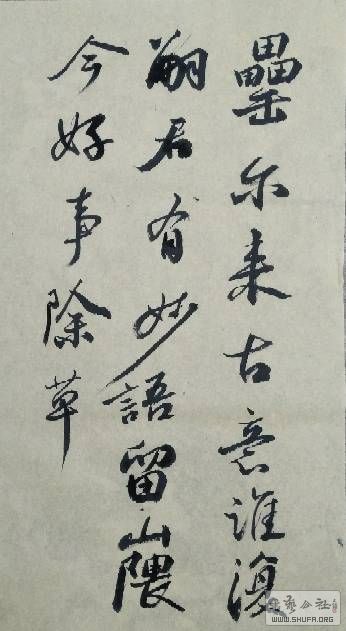 罍尔来古意誰復
嗣君有妙語留山隈
今好事除草
WWW.SHUFA.ORG